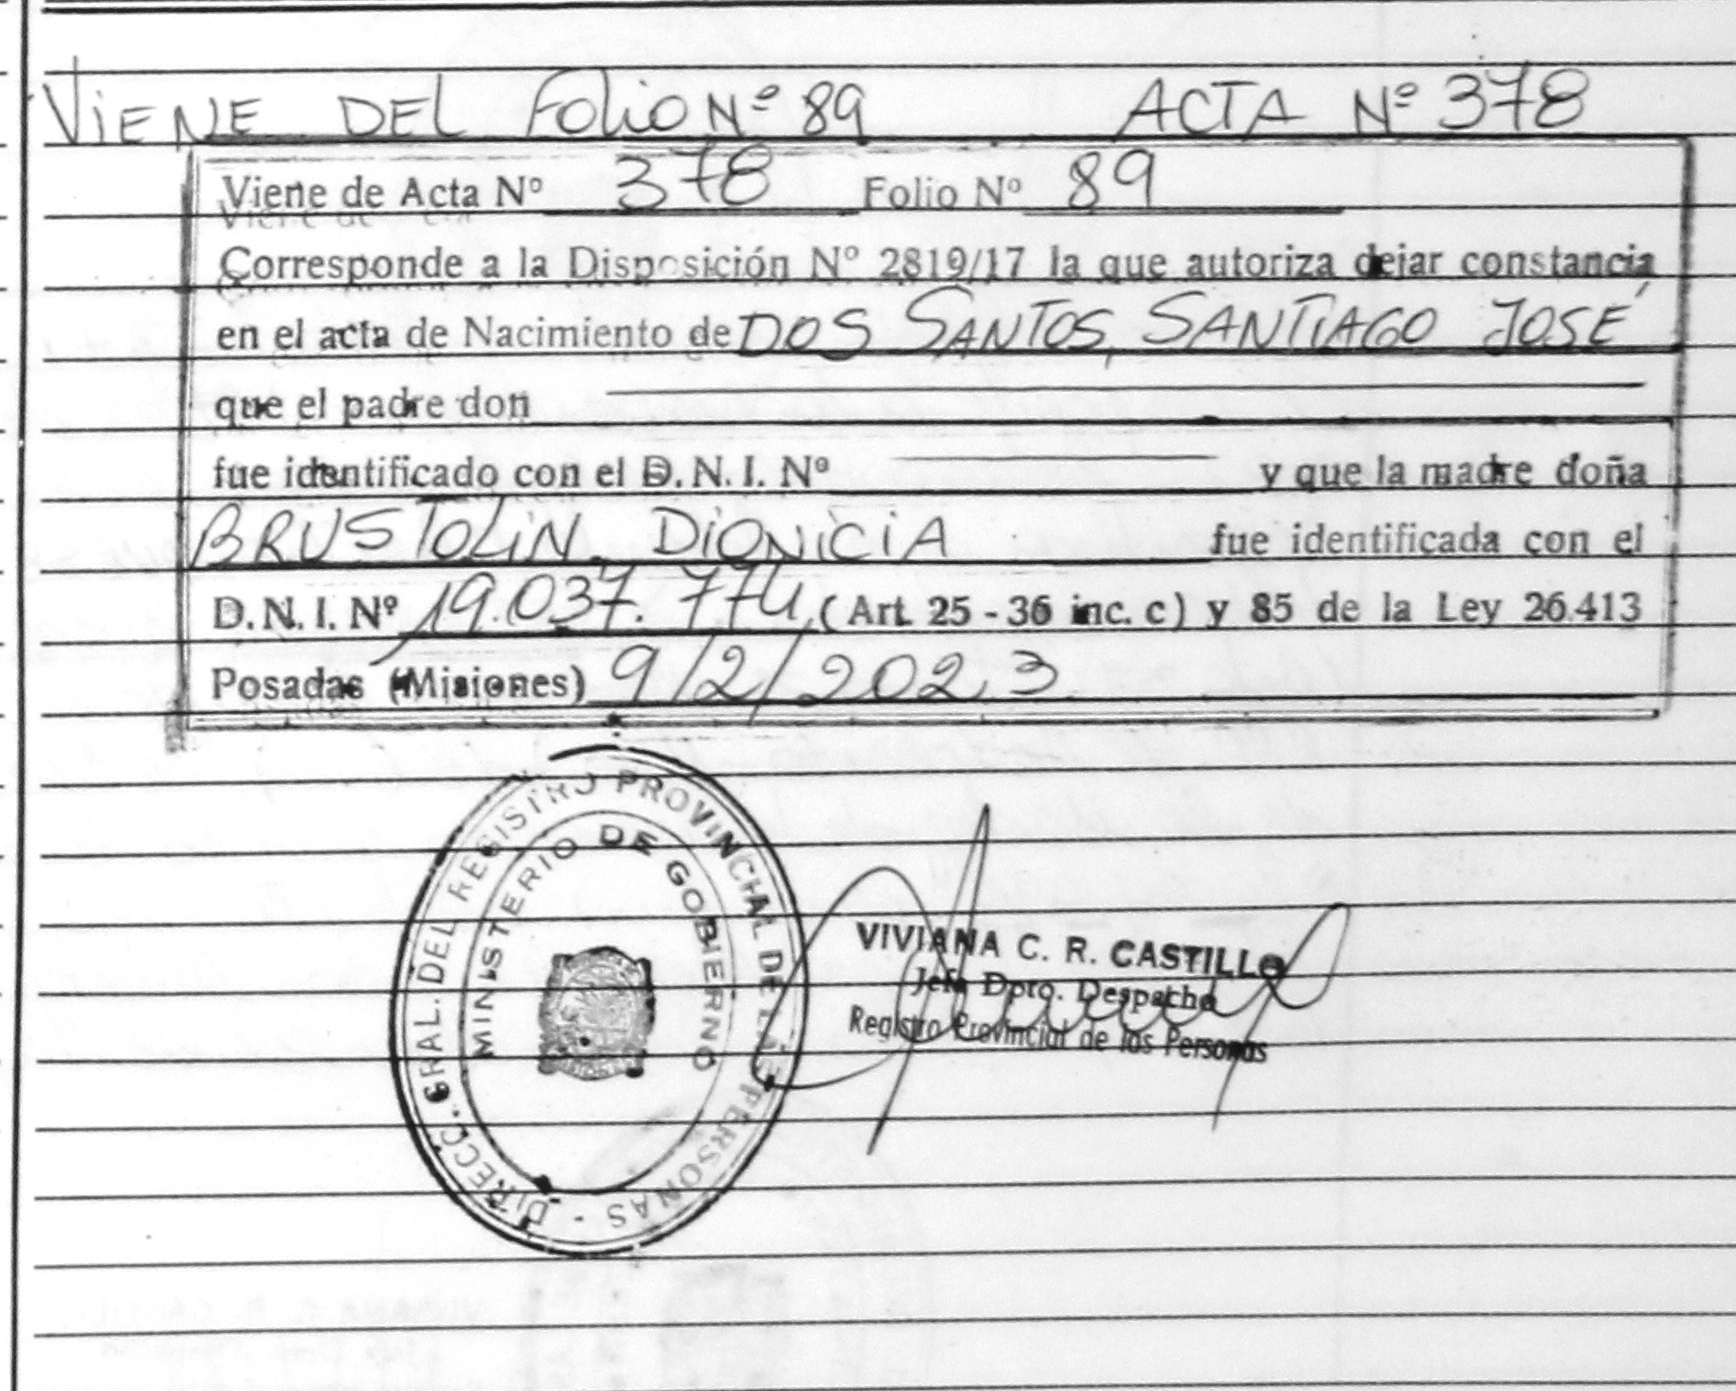 VIENE DEL FOLIO Nº 89 ACTA Nº 378
Viene de Acta Nº 378 Folio Nº 89
Corresponde a la Disposición Nº 2819/17 la que autoriza dejar constancia
en el acta de Nacimiento de DOS SANTOS, SANTIAGO JOSÉ
que el padre don
fue identificado con el D.N.I. Nº y que la madre doña
BRUSTOLIN, DIONICIA fue identificada con el
D.N.I. Nº 19.037.774 (Art. 25 - 36 inc. c) y 85 de la Ley 26.413
Posadas (Misiones) 9/2/2023
DIRECC. GRAL. DEL REGISTRO PROVINCIAL DE LAS PERSONAS -
MINISTERIO DE GOBIERNO
VIVIANA C. R. CASTILLO
Jefa Dpto. Despacho
Registro Provincial de las Personas